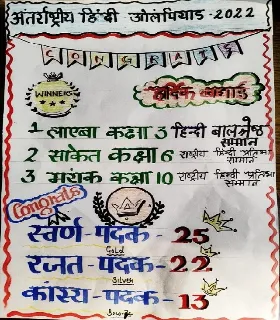 अंतर्राष्ट्रीय हिंदी ओलंपियाड - 2022
CONGRATS
WINNERS
हार्दिक बधाई
1 लाएबा कक्षा 3 हिन्दी बालमेज
सम्मान
2 साकेत कक्षा 6 राष्ट्रीय हिन्दी प्रतिभा
सम्मान
3 मयंक कक्षा 10 राष्ट्रीय हिन्दी प्रतिभा
सम्मान
Congrats
स्वर्ण-पदक-25
Gold
रजत-पदक-22
Silver
कांस्य-पदक-13